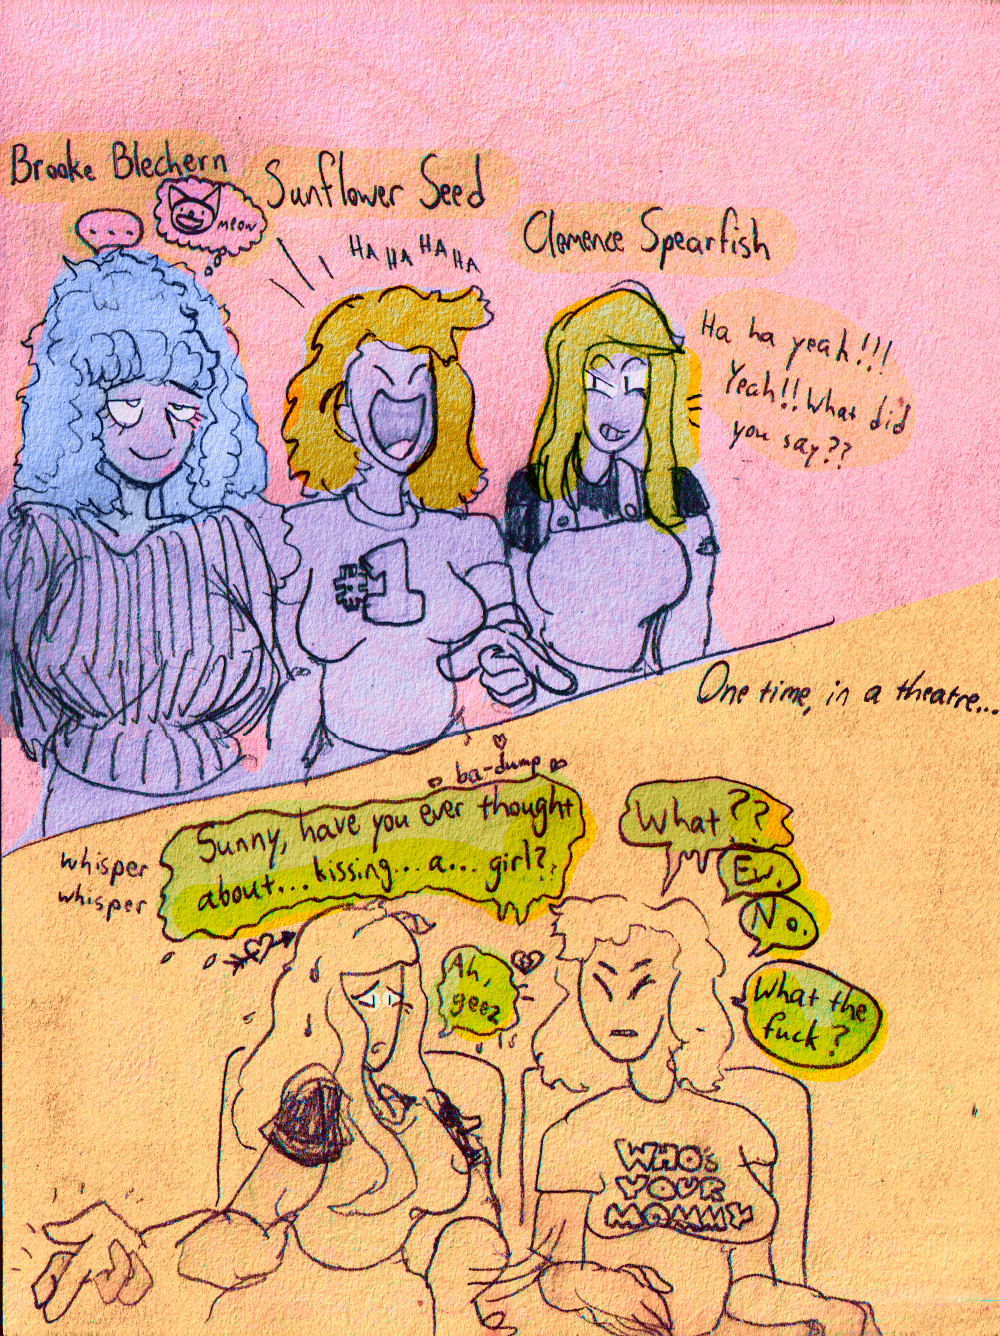 Brooke Blechern
....
meow
Sunflower Seed
HA HA HA HA
Clemence Spearfish
Ha ha yeah!!!
Yeah!! What did
you say??
#1
One time, in a theatre...
ba-dump
whisper
whisper
Sunny, have you ever thought
about... kissing... a... girl??
What??
Ew.
No.
What the
fuck?
Ah,
geez
WHO's
YOUR
MOMMY